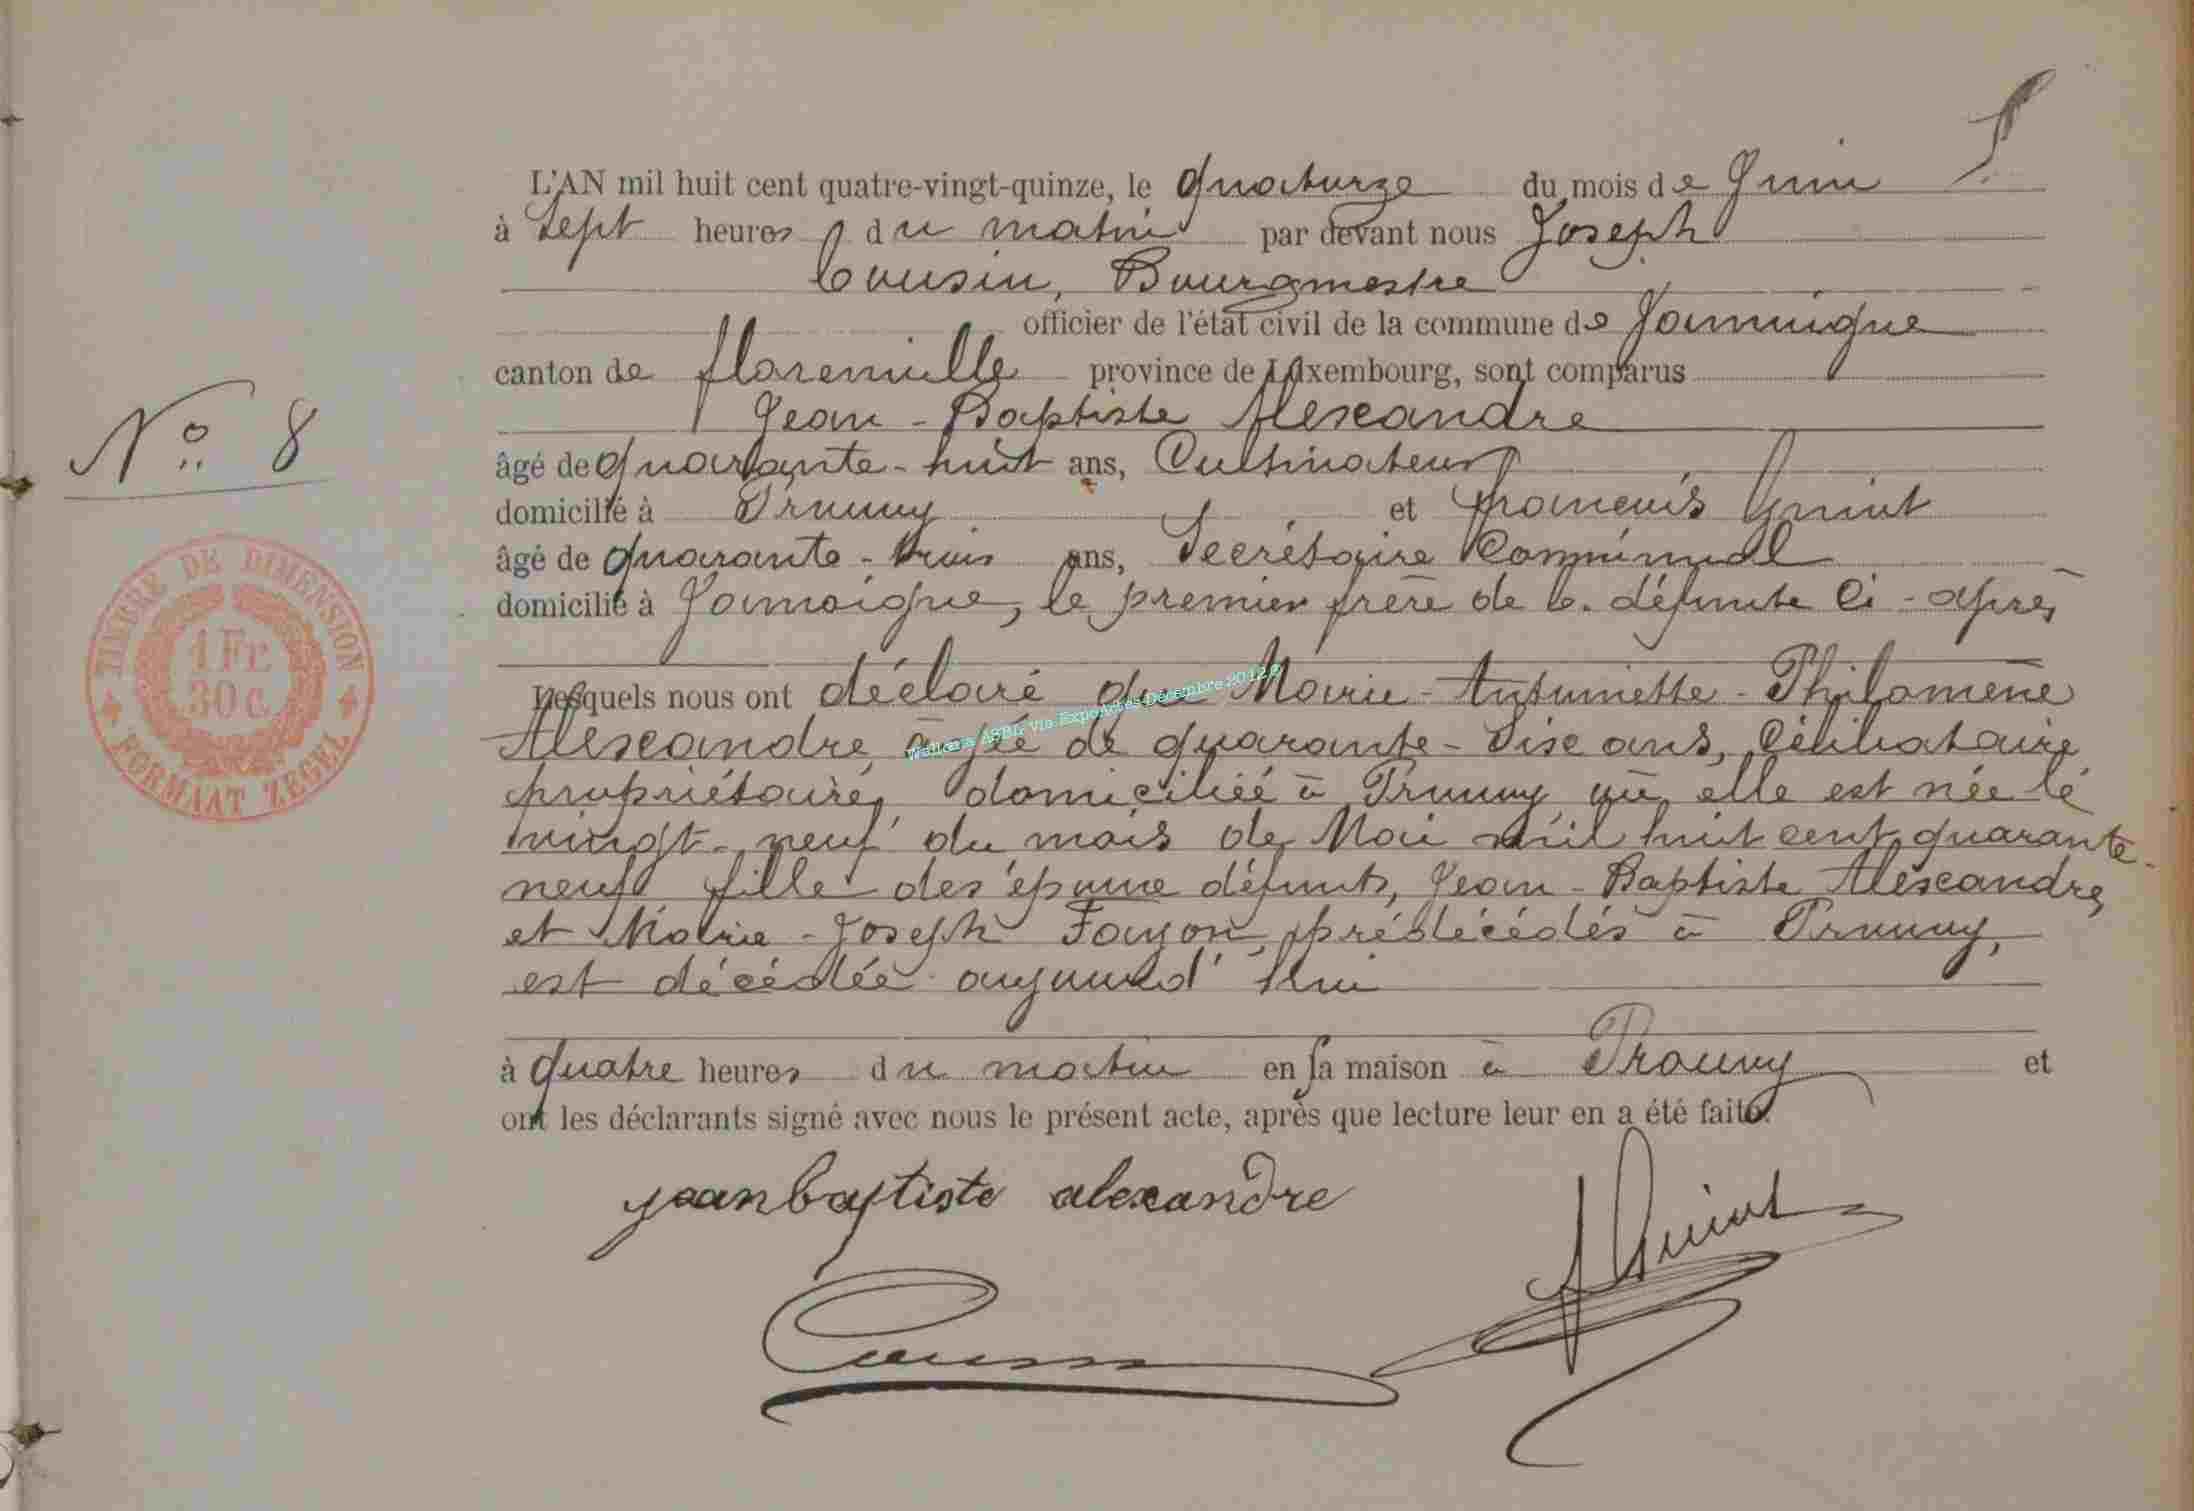 L'AN mil huit cent quatre-vingt-quinze, le quatorze du mois de Juin
à Sept heures du matin par devant nous Joseph
Cousin, Bourgmestre
officier de l'état civil de la commune de Jamoigne
canton de florenville province de Luxembourg, sont comparus
Jean-Baptiste Alexandre
N° 8
âgé de quarante-huit ans, Cultivateur
domicilié à Prouvy et françois Guiot
âgé de quarante-trois ans, Secrétaire Communal
domicilié à Jamoigne, le premier frère de la défunte Ci-après
TIMBRE DE DIMENSION
1 Fr.
30 c.
FORMAAT ZEGEL
Lesquels nous ont déclaré que Marie-Antoinette-Philomène
Walloria ASBL Via ExpoActes Décembre 2012
Alexandre, âgée de quarante-six ans, Célibataire
propriétaire, domiciliée à Prouvy où elle est née le
vingt-neuf du mois de Mai mil huit cent quarante-
neuf fille des époux défunts, Jean-Baptiste Alexandre,
et Marie-Joseph Fayon, prédécédés à Prouvy,
est décédée aujourd'hui
à quatre heures du matin en sa maison à Prouvy et
ont les déclarants signé avec nous le présent acte, après que lecture leur en a été faite.
jean baptiste alexandre
f Guiot
Cousin